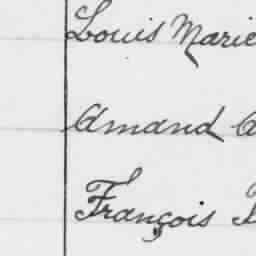 Louis Marie
Amand
François